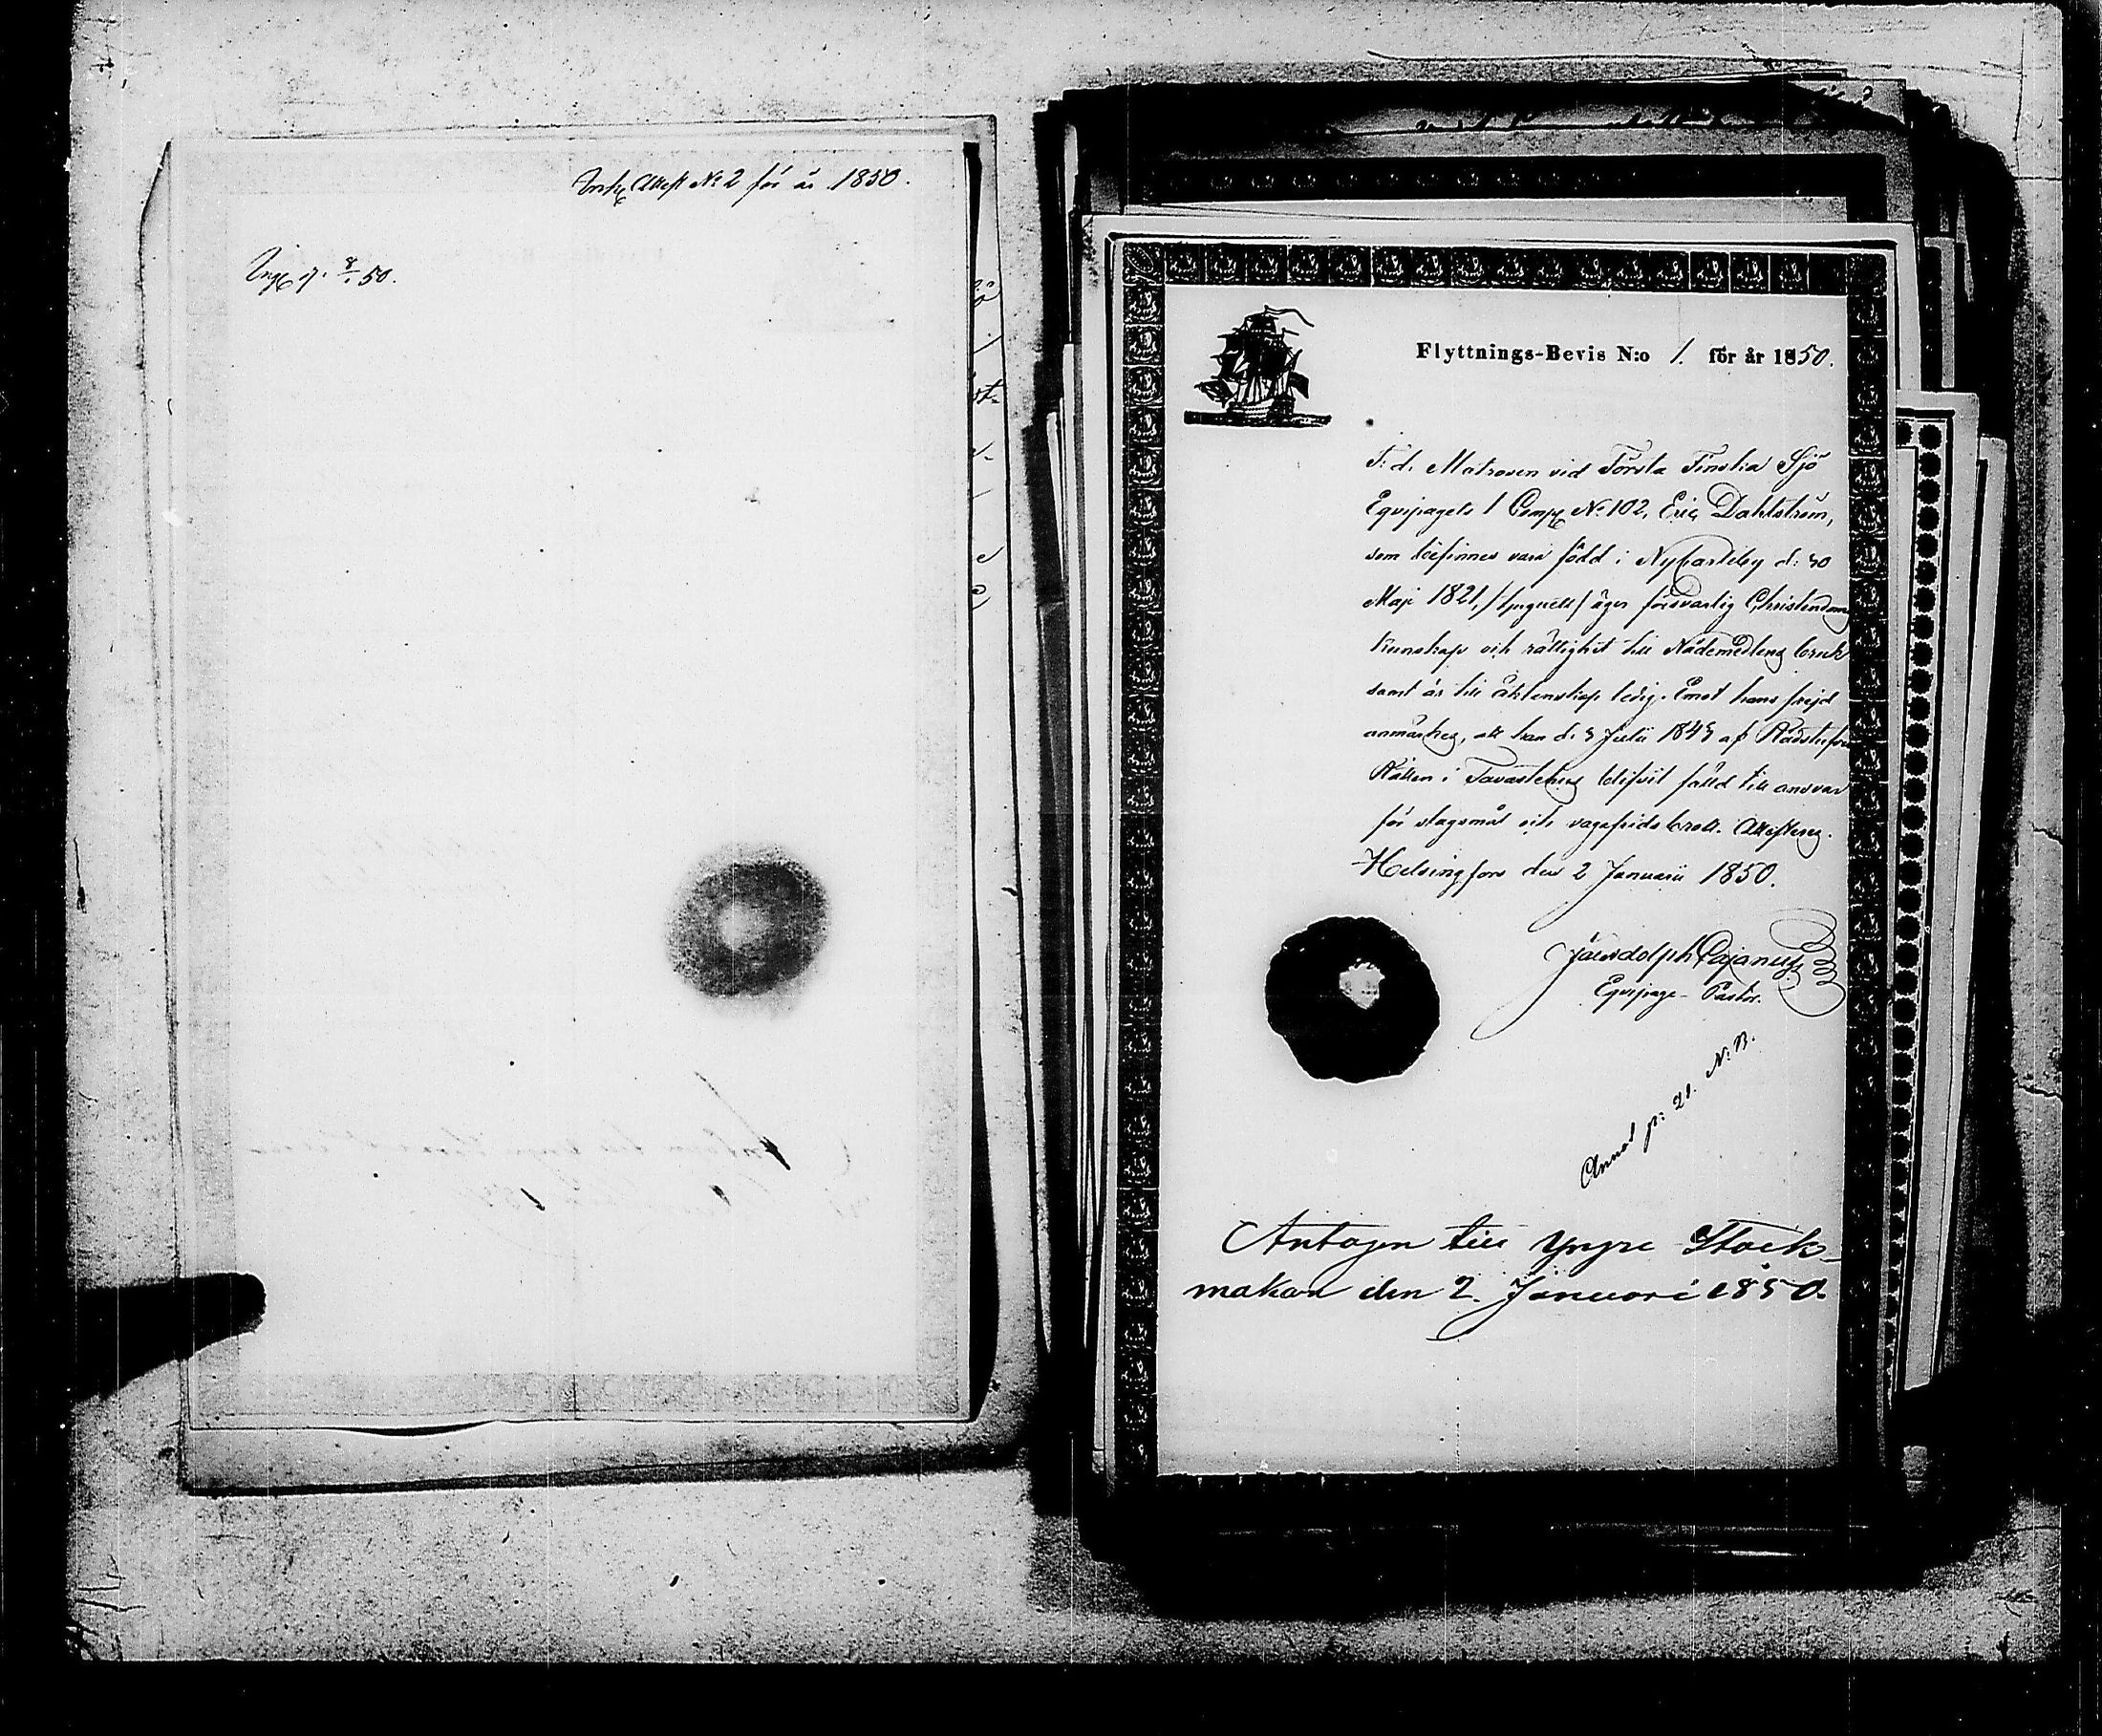 Attest No 2 för år 1850.
8/1 50.
Flyttnings-Bevis N:o 1. för år 1850.
F: d. Matrosen vid Första Finska Sjö
Equipagets 1 Comp No 102, Eric Dahlström,
som befinnes vara född i Nycarleby d: 30
Maji 1821, äger försvarlig Christendoms
kunskap och rättighet till Nådemedlens bruk
samt är till äktenskap ledig. Emot hans frejd
anmärkes, att han d. 3 Julii 1843 af Rådstufvu
Rätten i Tavastehus blifvit fälld till ansvar
för slagsmål och vägafridsbrott. Attesteras.
Helsingfors den 2 Januarii 1850.
Pajanus
Equipage-Pastor.
Annot p: 21. N: B.
Antagen till Yngre Stock-
makare den 2. Januari 1850.